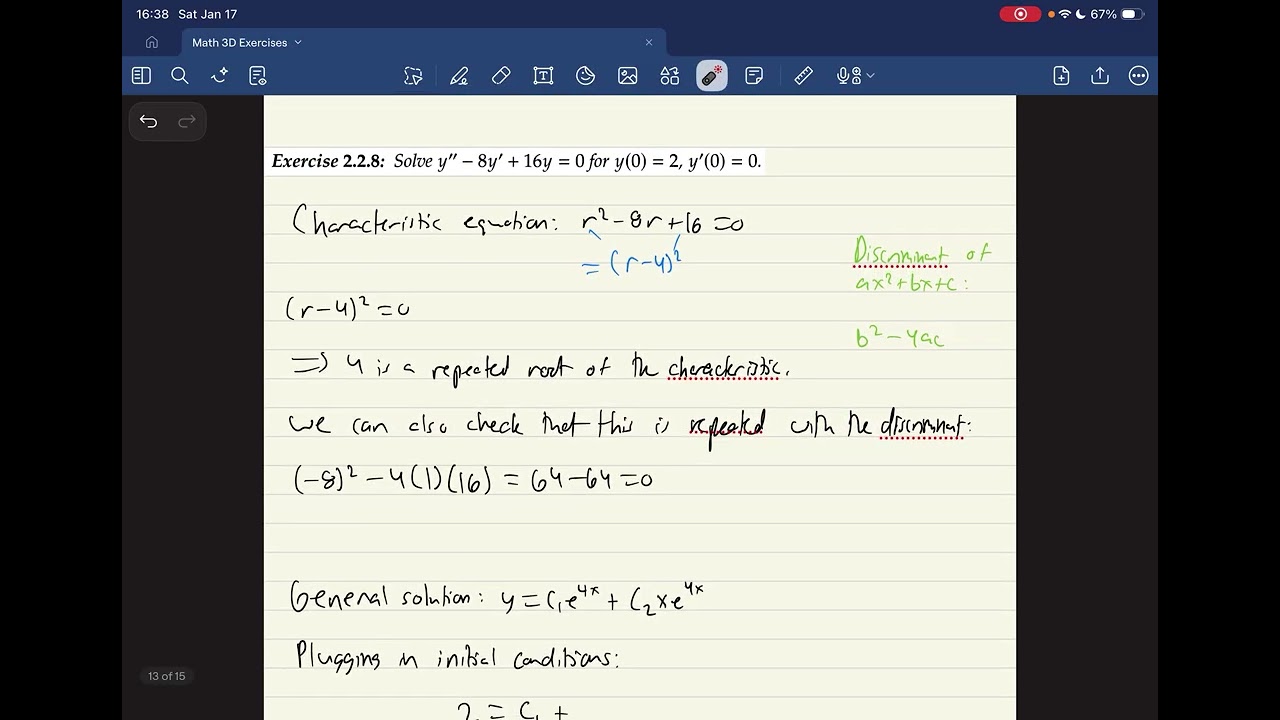 16:38 Sat Jan 17
67%
Math 3D Exercises
Exercise 2.2.8: Solve y″ − 8y′ + 16y = 0 for y(0) = 2, y′(0) = 0.
Characteristic equation: r² − 8r + 16 = 0
= (r−4)²
Discriminant of
ax² + bx + c:
(r−4)² = 0
b² − 4ac
⇒ 4 is a repeated root of the characteristic.
we can also check that this is repeated with the discriminant:
(−8)² − 4(1)(16) = 64 − 64 = 0
General solution: y = C₁e⁴ˣ + C₂xe⁴ˣ
Plugging in initial conditions:
13 of 15
2 = C₁ +